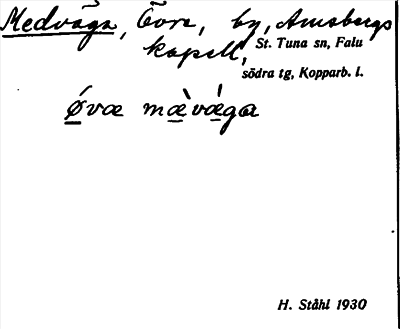 Medväga, Övre, by, Amsbergs
kapell,
St. Tuna sn, Falu
södra tg, Kopparb. l.
ǿvæ mæ̀vǽga
H. Ståhl 1930